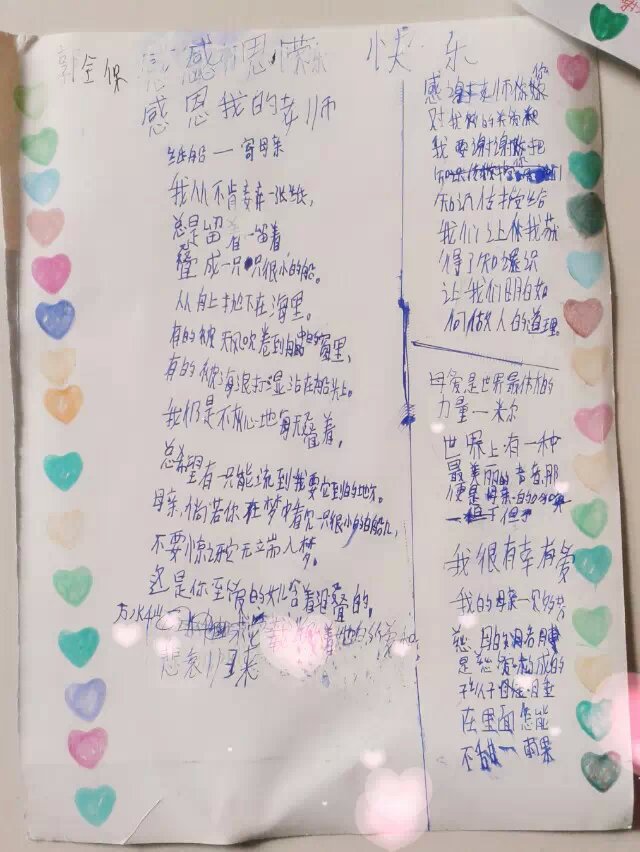 郭全保
感恩 快乐
感恩我的老师
纸船—寄母亲
我从不肯妄弃一张纸,
总是留着—留着
叠成一只只很小的船。
从舟上抛下在海里。
有的被天风吹卷到舟中的窗里,
有的被海浪打湿沾在船头上。
我仍是不灰心地每天叠着,
总希望有一只能流到我要它到的地方。
母亲,倘若你在梦中看见一只很小的白船儿,
不要惊讶它无端入梦。
这是你至爱的女儿含着泪叠的,
万水千山 载着她的爱和
悲哀归来
感谢老师你
对我们的关
我要谢谢你把
知识传授给
我们让我获
得了知识
让我们明白如
何做人的道理。
母爱是世界最伟大的
力量—米尔
世界上有一种
最美丽的声音,那
便是母亲的
我很有幸有爱
我的母亲一
慈母的
是慈爱构成的
孩子
在里面怎能
不甜—雨果